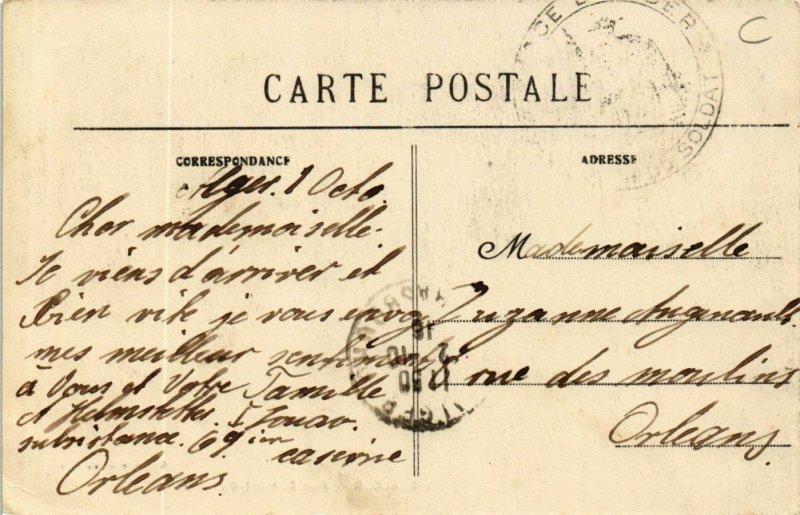 CARTE POSTALE
CORRESPONDANCE
ADRESSE
Alger. 1 Octo.
Cher mademoiselle.
Je viens d'arriver et
Bien vite je vous envoy
mes meilleur sentiments
à Vous et Votre Famille
et
subsistance. 69ier
caserne
Orleans
Mademoiselle
Suzanne
8 rue des moulins
Orleans.
PLACE D'ALGER
SOLDAT
C